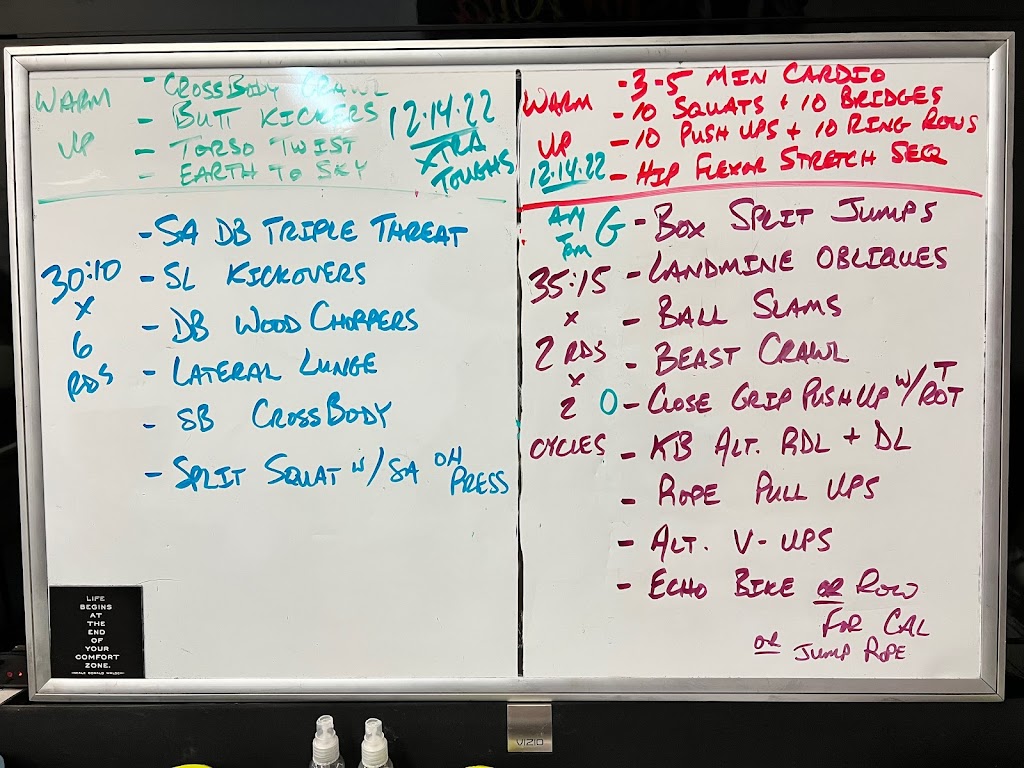 WARM UP
- CROSSBODY CRAWL
- BUTT KICKERS
- TORSO TWIST
- EARTH TO SKY
12.14.22
XTRA
TOUGHS
30:10
x
6
RDS
- SA DB TRIPLE THREAT
- SL KICKOVERS
- DB WOOD CHOPPERS
- LATERAL LUNGE
- SB CROSSBODY
- SPLIT SQUAT W/SA OH PRESS
LIFE
BEGINS
AT
THE
END
OF
YOUR
COMFORT
ZONE.
WARM
UP
12.14.22
- 3-5 MIN CARDIO
- 10 SQUATS + 10 BRIDGES
- 10 PUSH UPS + 10 RING ROWS
- HIP FLEXOR STRETCH SEQ
AM
G
35:15
x
2 RDS
x
2 O
CYCLES
- BOX SPLIT JUMPS
- LANDMINE OBLIQUES
- BALL SLAMS
- BEAST CRAWL
- CLOSE GRIP PUSH UP W/T ROT
- KB ALT. RDL + DL
- ROPE PULL UPS
- ALT. V-UPS
- ECHO BIKE OR ROW
FOR CAL
OR JUMP ROPE
VIZIO